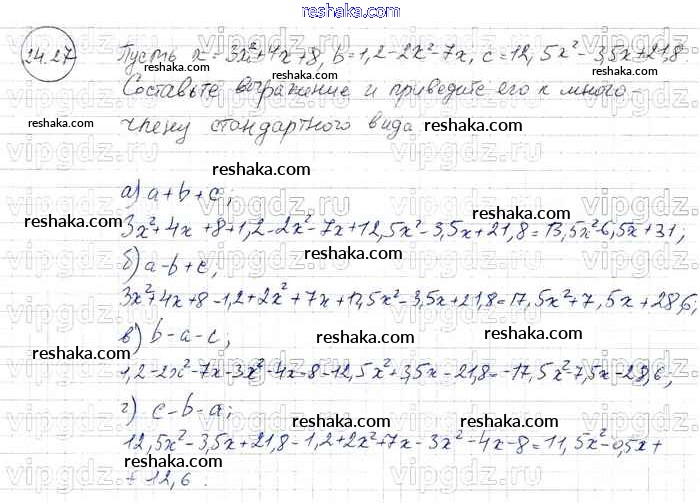 reshaka.com
24.27
Пусть x = 3x²+4x+8, b=1,2-2x²-7x, c=12,5x²-3,5x+21,8.
Составьте выражение и приведите его к много-
члену стандартного вида
reshaka.com
reshaka.com
а) a+b+c;
reshaka.com
3x²+4x+8+1,2-2x²-7x+12,5x²-3,5x+21,8=13,5x²-6,5x+31;
reshaka.com
б) a-b+c;
reshaka.com
3x²+4x+8-1,2+2x²+7x+12,5x²-3,5x+21,8=17,5x²+7,5x+28,6;
reshaka.com
в) b-a-c;
reshaka.com
1,2-2x²-7x-3x²-4x-8-12,5x²+3,5x-21,8=-17,5x²-7,5x-28,6;
reshaka.com
г) c-b-a;
reshaka.com
12,5x²-3,5x+21,8-1,2+2x²+7x-3x²-4x-8=11,5x²-0,5x+
+12,6.
reshaka.com